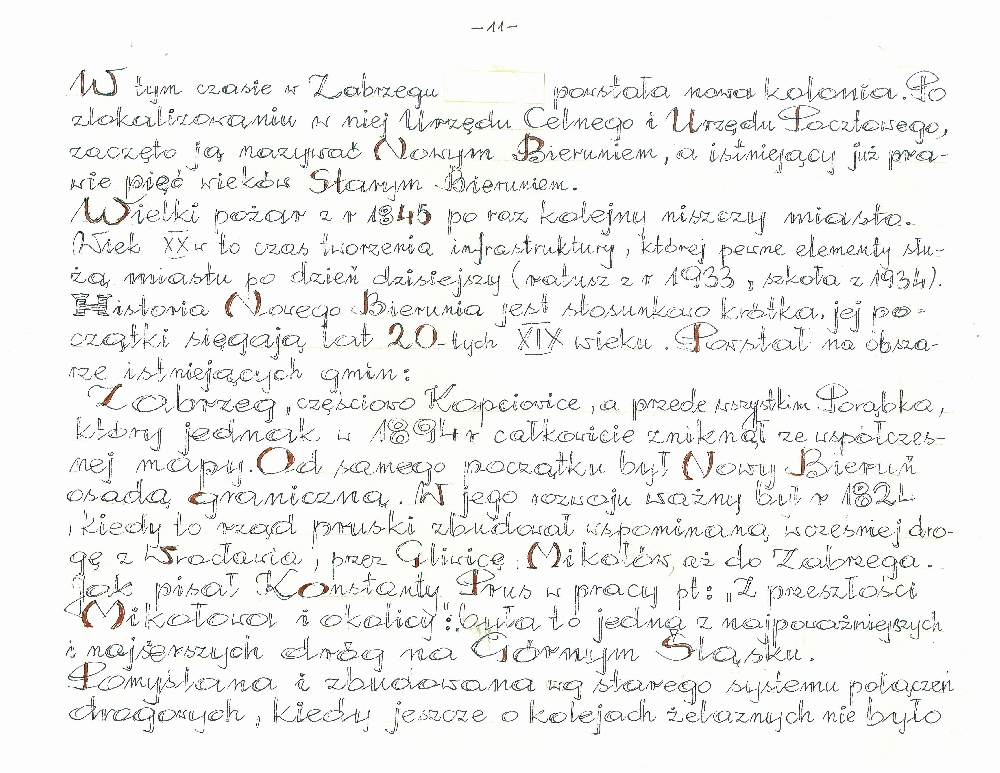 -11-
W tym czasie w Zabrzegu powstała nowa kolonia. Po
zlokalizowaniu w niej Urzędu Celnego i Urzędu Pocztowego,
zaczęto ją nazywać Nowym Bieruniem, a istniejący już pra-
wie pięć wieków Starym Bieruniem.
Wielki pożar z r 1845 po raz kolejny niszczy miasto.
Wiek XX w to czas tworzenia infrastruktury, której pewne elementy słu-
żą miastu po dzień dzisiejszy (ratusz z r 1933, szkoła z 1934).
Historia Nowego Bierunia jest stosunkowo krótka, jej po-
czątki sięgają lat 20-tych XIX wieku. Powstał na obsza-
rze istniejących gmin:
Zabrzeg, częściowo Kopciowice, a przede wszystkim Porąbka,
który jednak w 1894 r całkowicie zniknął ze współczes-
nej mapy. Od samego początku był Nowy Bieruń
osadą graniczną. W jego rozwoju ważny był r 1821
, kiedy to rząd pruski zbudował wspominaną wcześniej dro-
gę z Wrocławia, przez Gliwice, Mikołów, aż do Zabrzega.
Jak pisał Konstanty Prus w pracy pt: „Z przeszłości
Mikołowa i okolicy": była to jedną z najpoważniejszych
i najszerszych dróg na Górnym Śląsku.
Pomyślana i zbudowana wg starego systemu połączeń
drogowych, kiedy jeszcze o kolejach żelaznych nie było